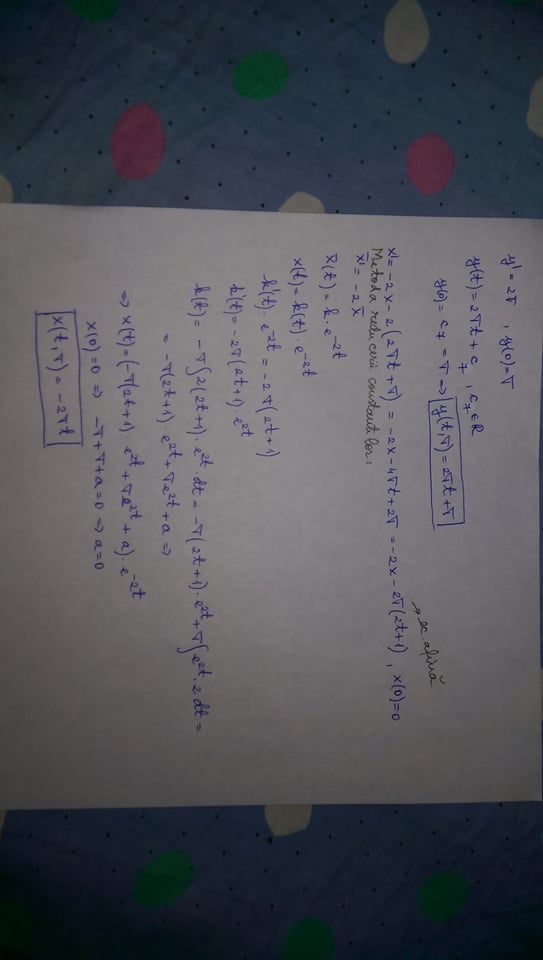 y' = 2τ , y(0)=τ
y(t) = 2τt + c₇ , c₇ ∈ R
y(0) = c₇ = τ => y(t,τ) = 2τt+τ
→ ec. afină
x' = -2x - 2(2τt+τ) = -2x-4τt+2τ = -2x - 2τ(2t+1) , x(0)=0
Metoda reducerii constantelor:
x̄' = -2x̄
x̄(t) = k · e^{-2t}
x(t) = k(t) · e^{-2t}
k'(t) · e^{-2t} = -2τ(2t+1)
k'(t) = -2τ(2t+1) · e^{2t}
k(t) = -τ∫2(2t+1) · e^{2t} · dt = -τ(2t+1) · e^{2t} + τ∫e^{2t} · 2 dt =
= -τ(2t+1) · e^{2t} + τe^{2t} + a =>
=> x(t) = (-τ(2t+1) · e^{2t} + τe^{2t} + a) · e^{-2t}
x(0) = 0 => -τ+τ+a=0 => a=0
x(t,τ) = -2τt